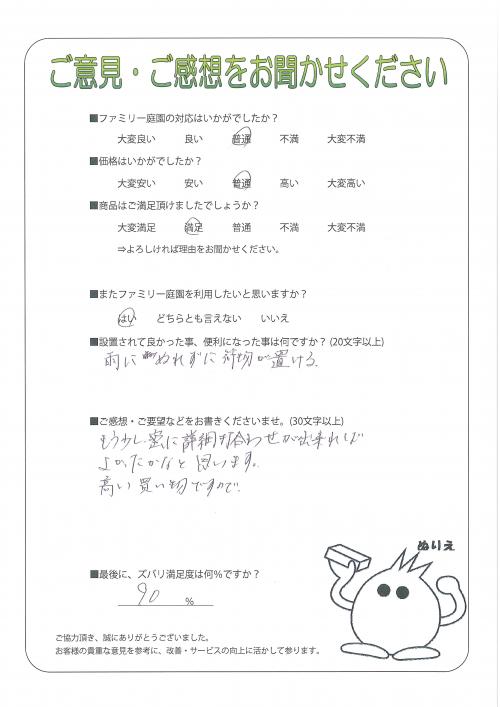 ご意見・ご感想をお聞かせください
■ファミリー庭園の対応はいかがでしたか？
大変良い 良い 普通 不満 大変不満
■価格はいかがでしたか？
大変安い 安い 普通 高い 大変高い
■商品はご満足頂けましたでしょうか？
大変満足 満足 普通 不満 大変不満
⇒よろしければ理由をお聞かせください。
■またファミリー庭園を利用したいと思いますか？
はい どちらとも言えない いいえ
■設置されて良かった事、便利になった事は何ですか？(20文字以上)
雨にぬれずに荷物が置ける。
■ご感想・ご要望などをお書きくださいませ。(30文字以上)
もう少し密に詳細打合わせが出来れば
よかったかなと思います。
高い買い物ですので。
ぬりえ
■最後に、ズバリ満足度は何％ですか？
90 %
ご協力頂き、誠にありがとうございました。
お客様の貴重な意見を参考に、改善・サービスの向上に活かして参ります。